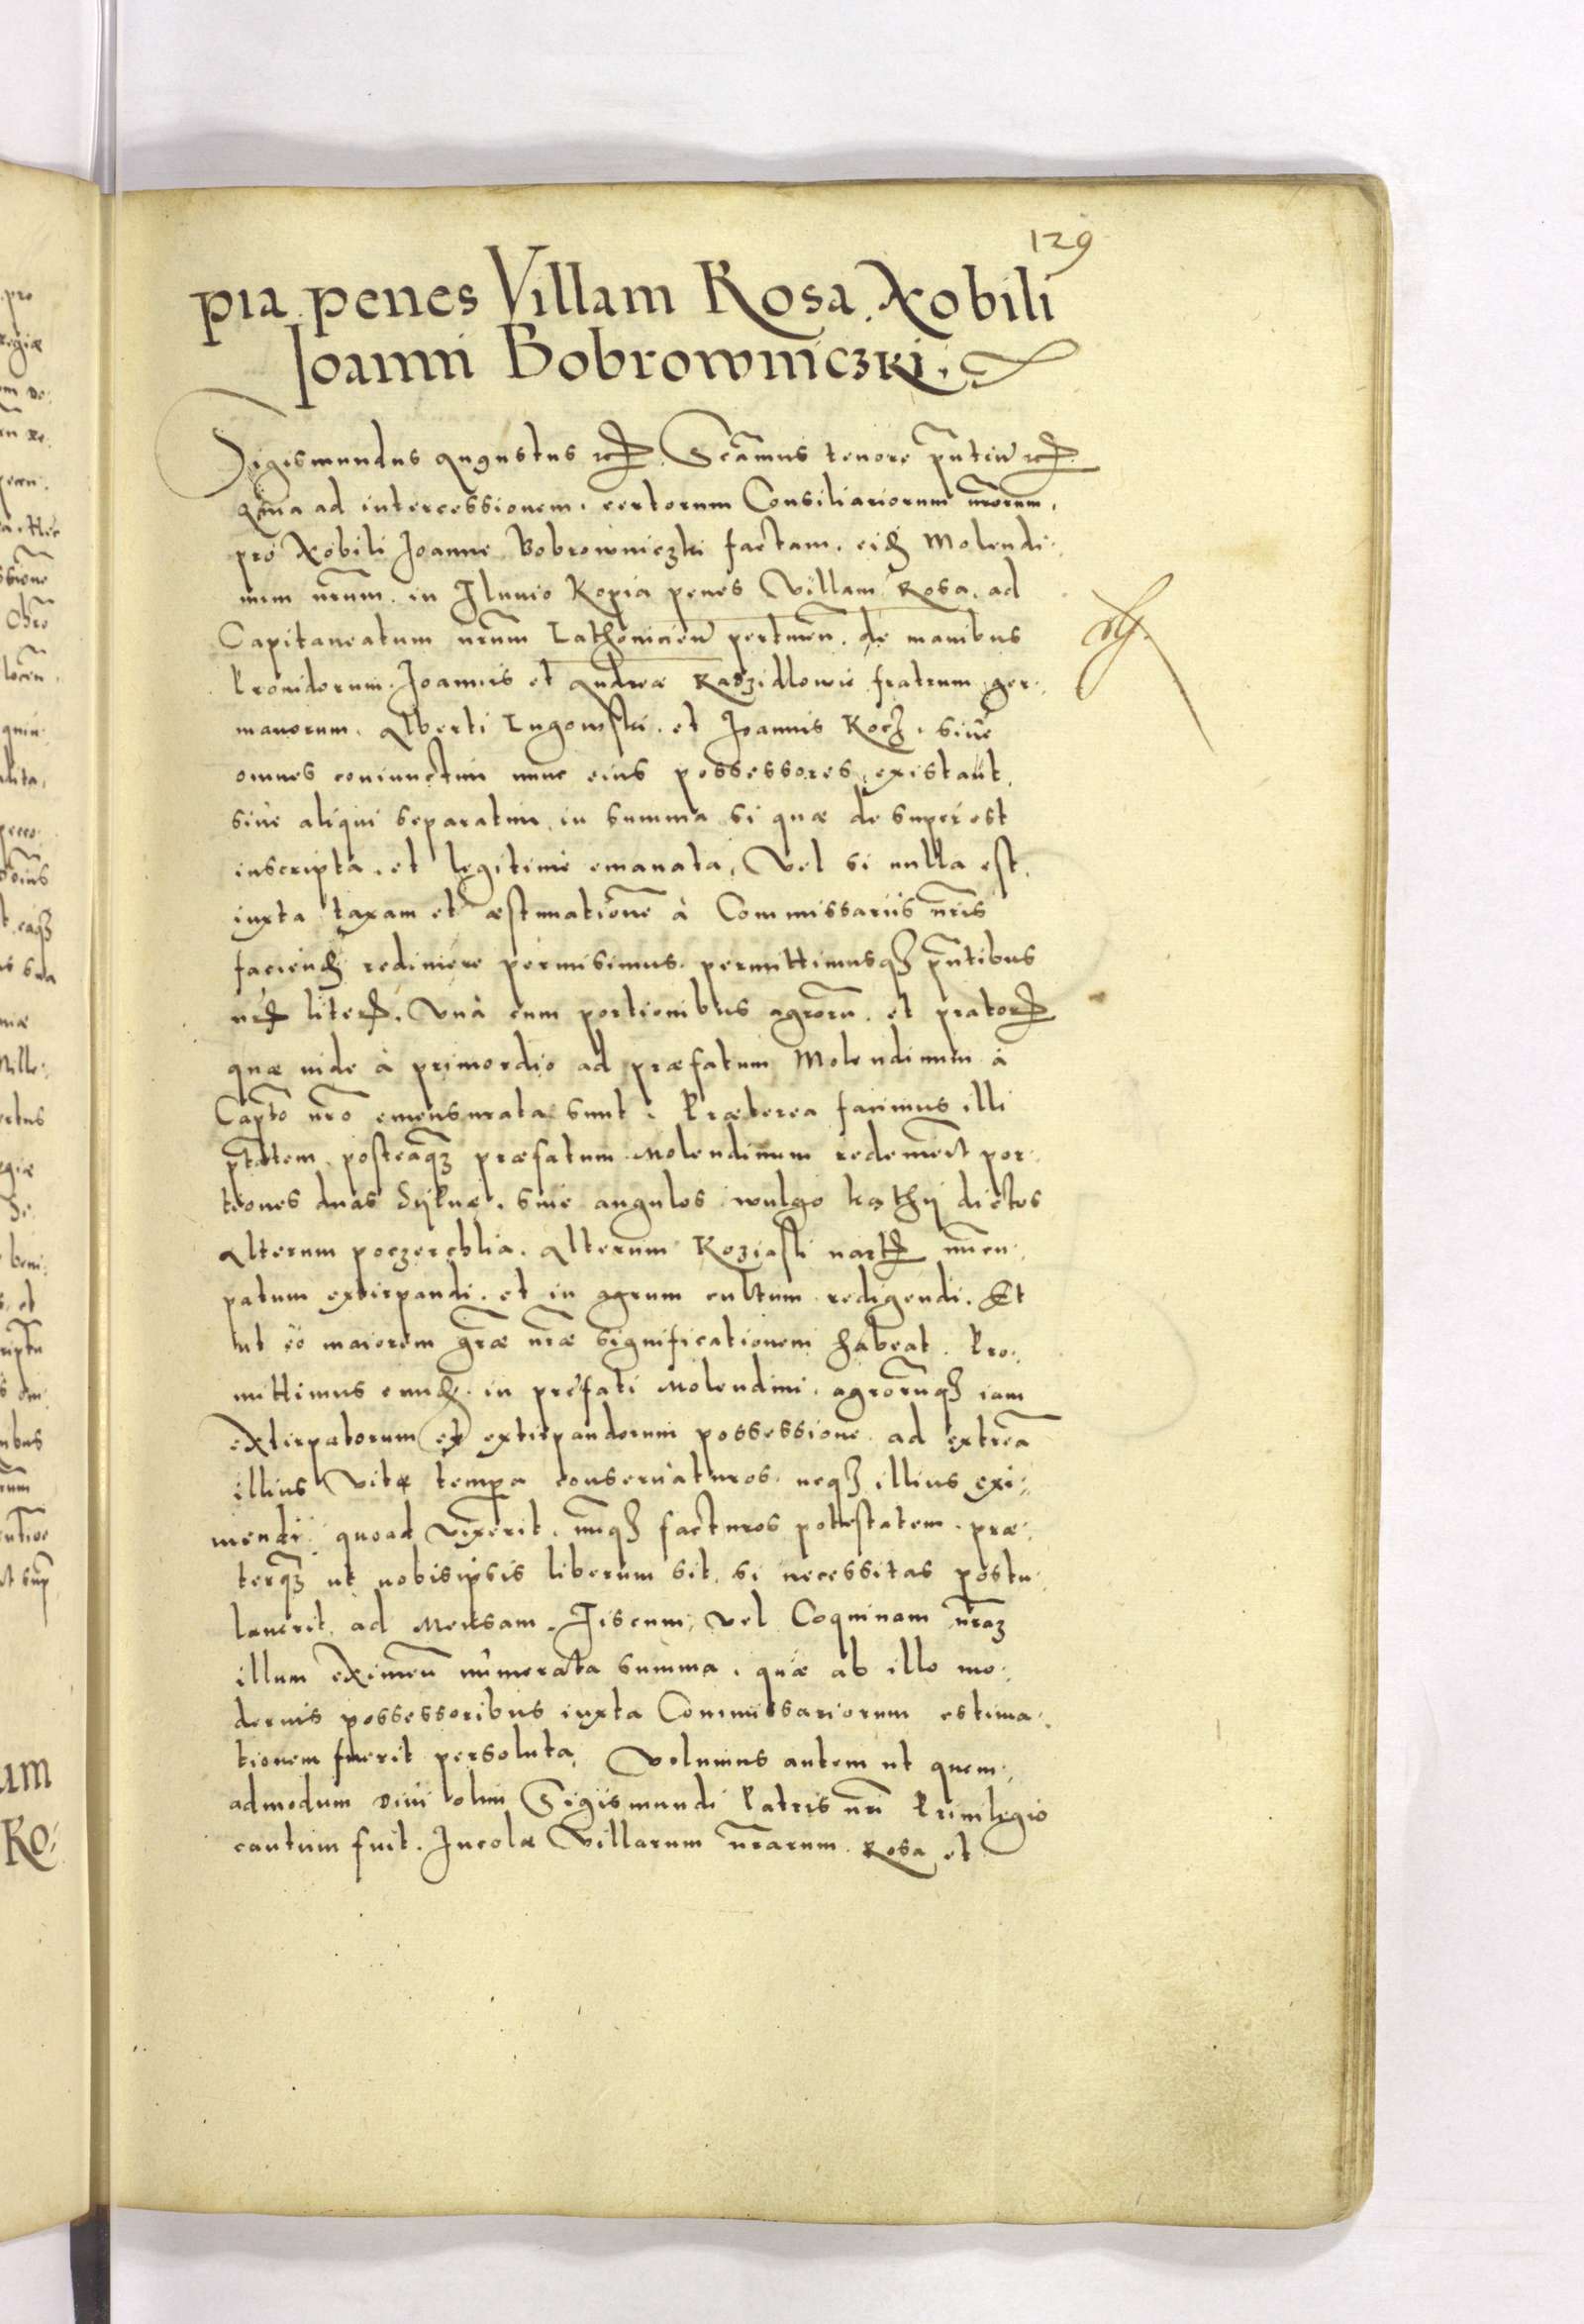 129
pia penes Villam Rosa. Nobili
Joanni Bobrowniczki.
Sigismundus Augustus etc. Sc̃amus tenore p̃ntiũ etc.
Quia ad intercessionem certorum Consiliariorum nr̃orum,
pro Nobili Joanne Bobrowniczki factam, eid̃ Molendi:
num nr̃um in Fluuio Kopia penes Villam Rosa, ad
Capitaneatum nr̃um Lathouicieñ pertineñ. de manibus
Prouidorum Joannis et Andreæ Radzidlowie fratrum ger:
manorum, Alberti Lugowski, et Joannis Koch, siue
omnes coniunctim nunc eius possessores existant,
siue aliqui separatim, in summa si quæ de super est
inscripta, et legitime emanata, Vel si nulla est,
iuxta taxam et æstimationẽ à Commissariis nr̃is
faciend̃ redimere permisimus, permittimusq₃ p̃ntibus
nr̃is literis, Vnà cum portionibus agrorũ, et pratorum
quæ inde à primordio ad præfatum Molendinum à
Capt̃o nr̃o emensurata sunt. Præterea facimus illi
p̃tatem, posteaq̃₃ præfatum Molendinum redemerit por:
tiones duas Syluæ, siue angulos wulgo kąthy dictos
Alterum poczerebliа. Alterum Koziaski narth nuncu:
patum extirpandi, et in agrum cultum redigendi. Et
ut eò maiorem gr̃æ nr̃æ significationem habeat, Pro:
mittimus eund̃ in præfati Molendini, agrorũq₃ iam
extirpatorum et extirpandorum possessione ad extrẽa
illius Vitæ tempora conseruaturos, neq₃ illius exi:
mendi quoad Vixerit, cuiq₃ facturos potestatem, præ:
terq̃₃ ut nobisipsis liberum sit, si necessitas postu:
lauerit, ad Mensam, Fiscum, vel Coquinam nr̃a₃
illum eximeñ numerata summa, quæ ab illo mo:
dernis possessoribus iuxta Commissariorum estima:
tionem fuerit persoluta, Volumus autem ut quem:
admodum Diui olim Sigismundi Patris nr̃i Priuilegio
cautum fuit, Incolæ Villarum nr̃arum Rosa et